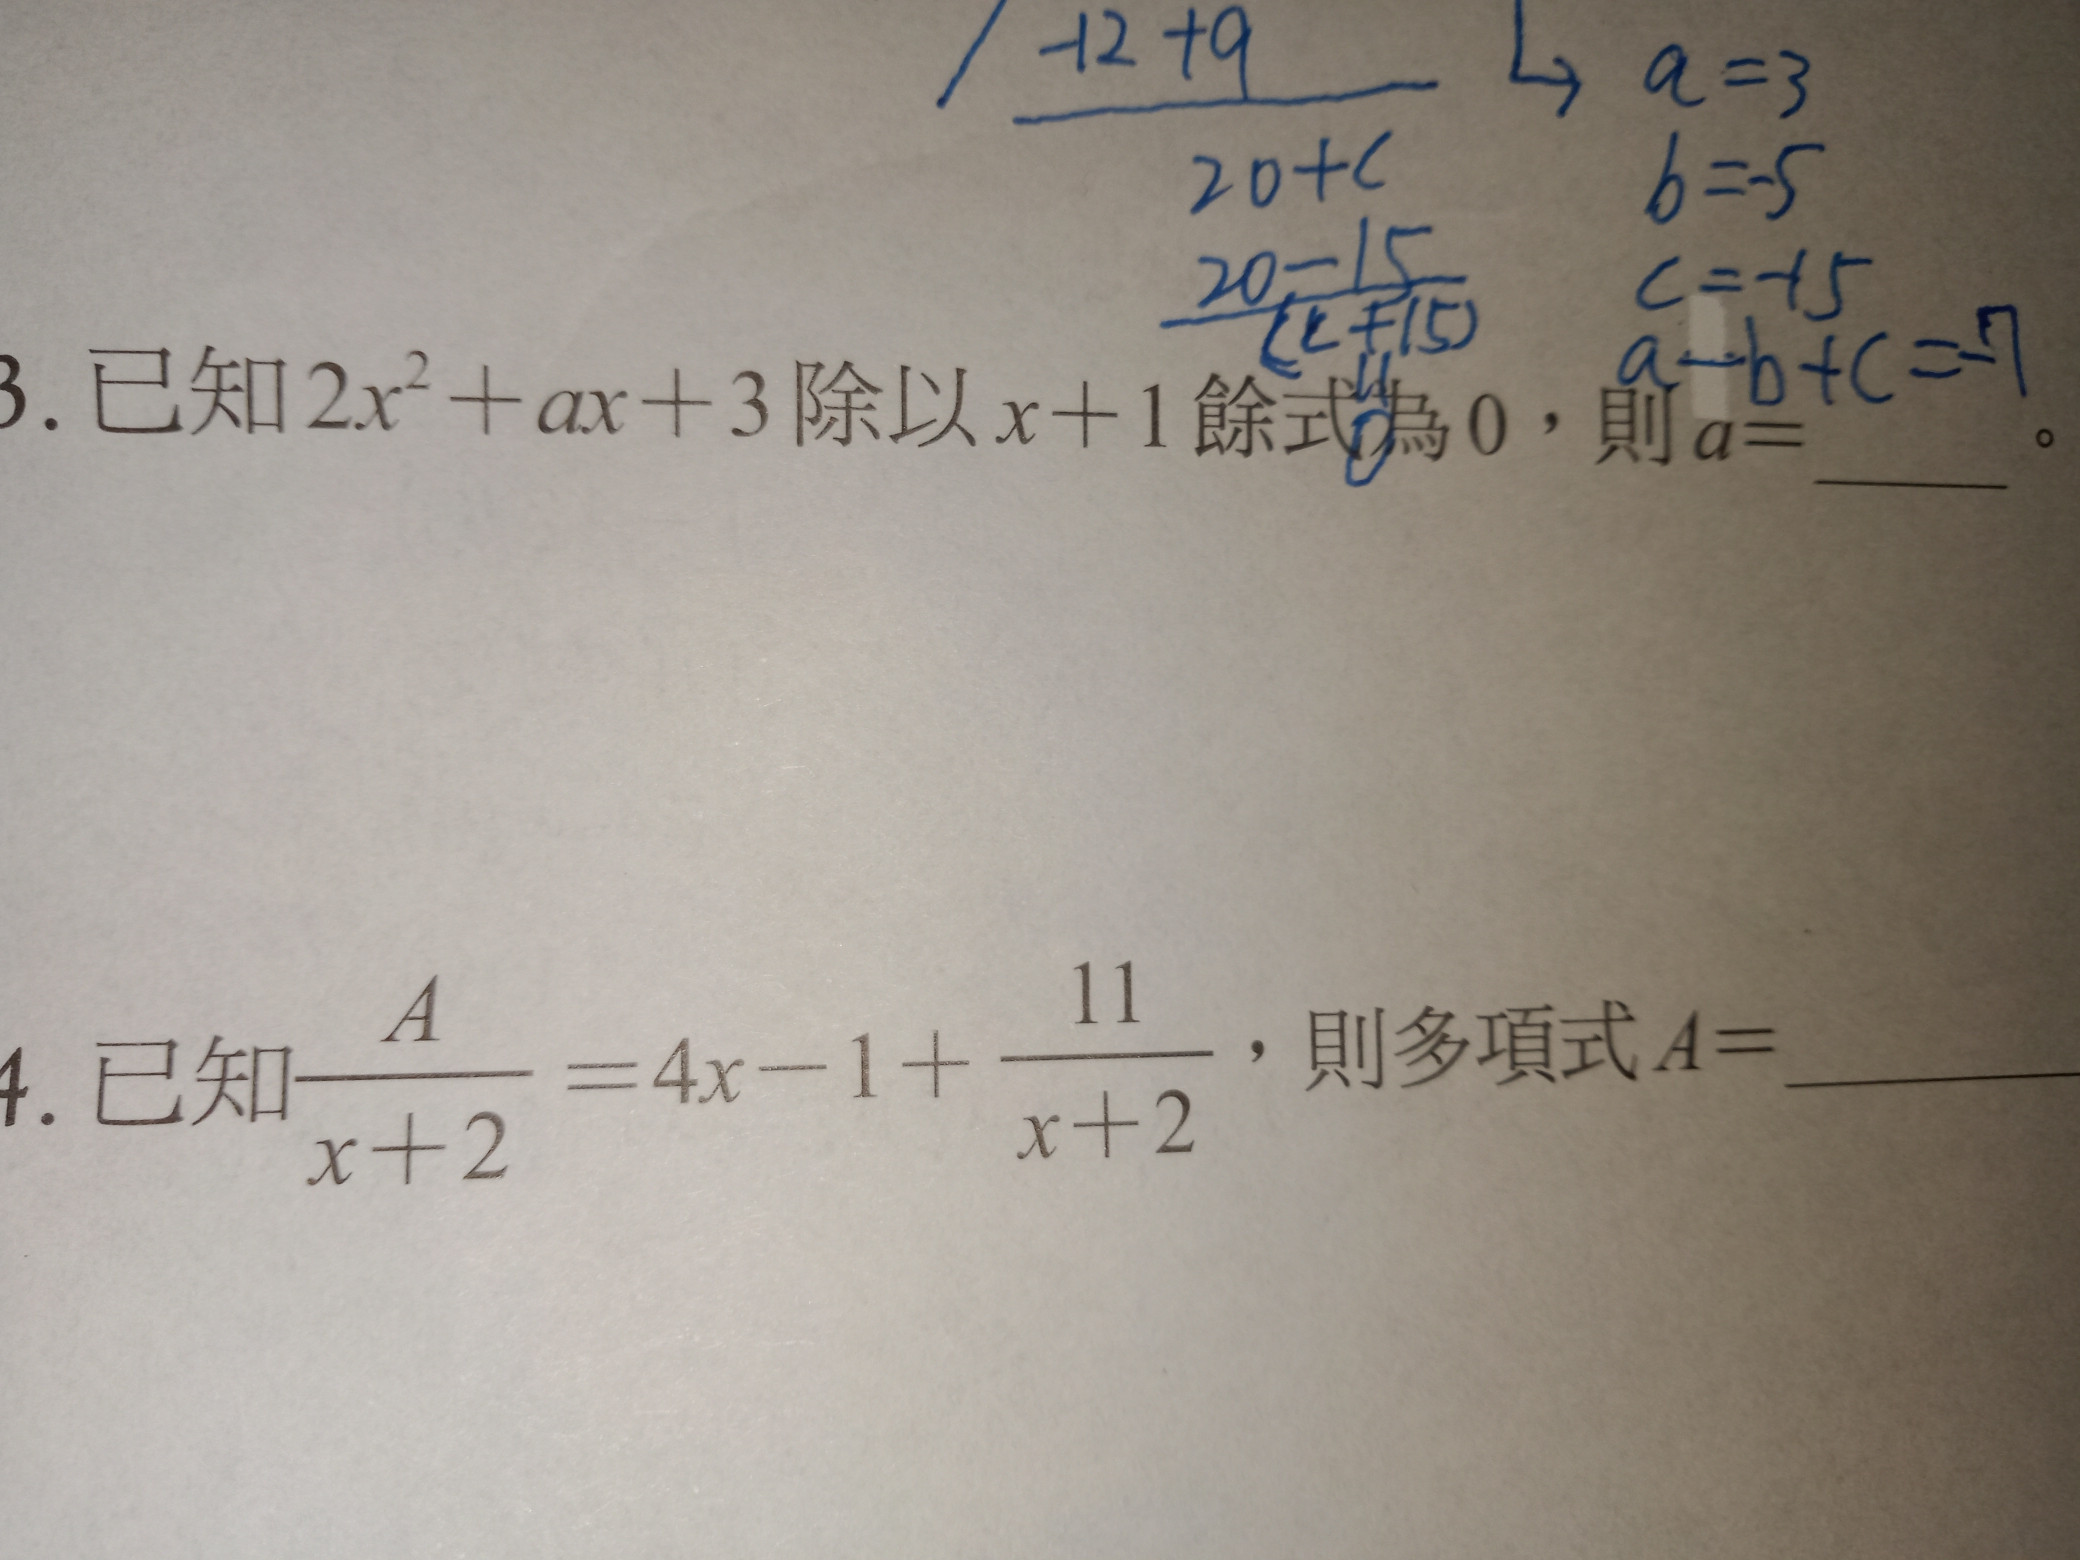 -12+9
20+c
20-15
(c+15)
"
0
a=3
b=-5
c=-15
a-b+c=-7
3. 已知2x²+ax+3除以x+1餘式為0，則a=____。
4. 已知A/(x+2)=4x-1+11/(x+2)，則多項式A=____